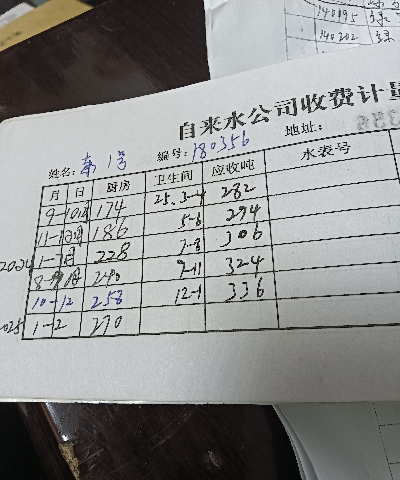 140195
140202
自来水公司收费计量
姓名: 1号 编号: 180356 地址:
月 日 厨房 卫生间 应收吨 水表号
9-10月 174 25.3-4 282
11-12月 186 5-6 294
2024 1-7月 228 7-8 306
8-9月 240 9-11 324
10-12 258 12-1 336
2025 1-2 270